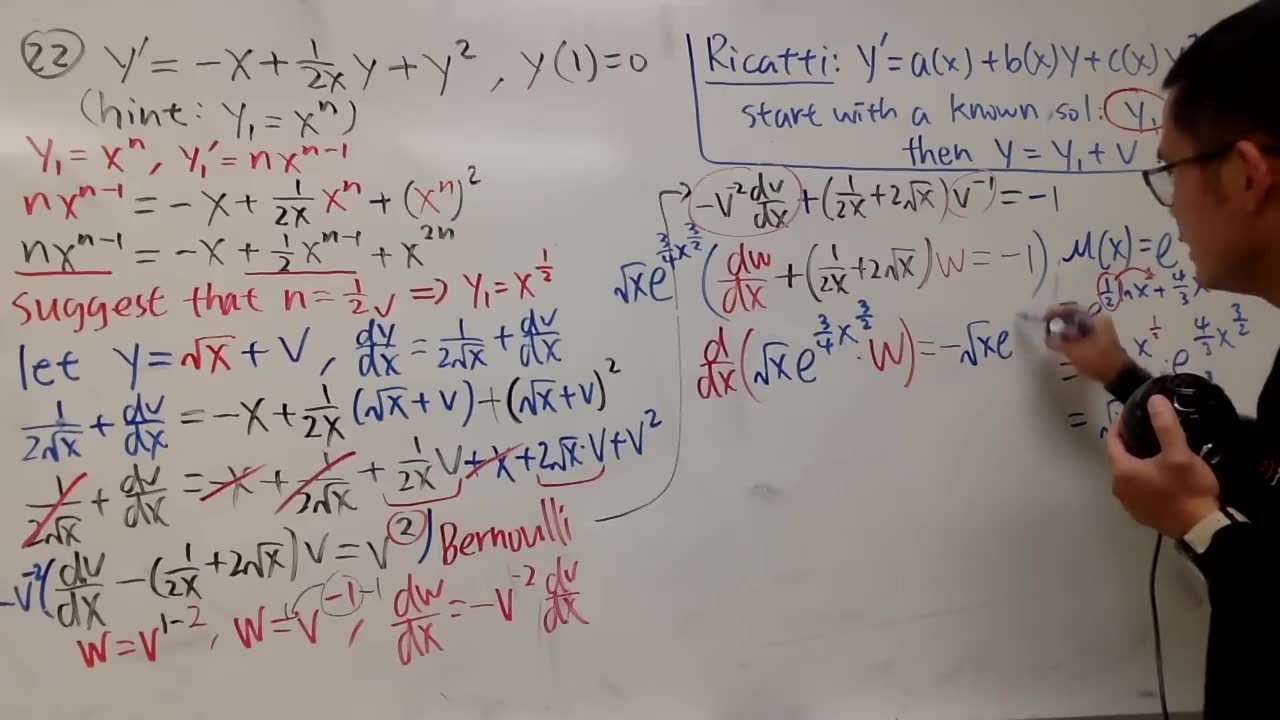 ㉒ y' = -x + 1/(2x) y + y², y(1)=0
(hint: y₁ = xⁿ)
y₁ = xⁿ, y₁' = nxⁿ⁻¹
nxⁿ⁻¹ = -x + 1/(2x) xⁿ + (xⁿ)²
nxⁿ⁻¹ = -x + 1/2 xⁿ⁻¹ + x²ⁿ
suggest that n = 1/2 ✓ ⇒ y₁ = x^(1/2)
let y = √x + v, dy/dx = 1/(2√x) + dv/dx
1/(2√x) + dv/dx = -x + 1/(2x) (√x + v) + (√x + v)²
1/(2√x) + dv/dx = -x + 1/(2√x) + 1/(2x) v + x + 2√x·v + v²
-v⁻²(dv/dx - (1/(2x) + 2√x) v = v²) Bernoulli
w = v¹⁻², w = v⁻¹, dw/dx = -v⁻² dv/dx
Ricatti: y' = a(x) + b(x)y + c(x)
start with a known sol: y₁
then y = y₁ + v
-v⁻² dv/dx + (1/(2x) + 2√x) v⁻¹ = -1
√x e^(3/4 x^(3/2)) (dw/dx + (1/(2x) + 2√x) w = -1)
d/dx (√x e^(3/4 x^(3/2)) · w) = -√x e
μ(x) = e
1/2 ln x + 4/3 x
= x^(1/2) · e^(4/3 x^(3/2))
= √